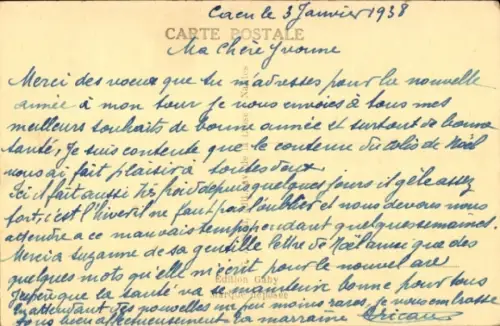 Caen le 3 Janvier 1938
CARTE POSTALE
Ma Chère Yvonne
Merci des voeux que tu m'adresses pour la nouvelle
année à mon tour je vous envoies à tous mes
meilleurs souhaits de bonne année et surtout de bonne
santé, Je suis contente que le contenu du colis de Noël
vous ai fait plaisir à toutes deux
Ici il fait aussi très froid depuis quelques jours il gèle assez
fort, c'est l'hiver il ne faut pas l'oublier et nous devons nous
attendre a ce mauvais temps pendant quelques semaines.
Merci a Suzanne de sa gentille lettre de Noël ainsi que des
quelques mots qu'elle m'écrit pour le nouvel an
J'espère que la santé va se maintenir bonne pour tous
En attendant des nouvelles un peu moins rares, je vous embrasse
tous bien affectueusement ta marraine
Edition Gaby
Marque Déposée